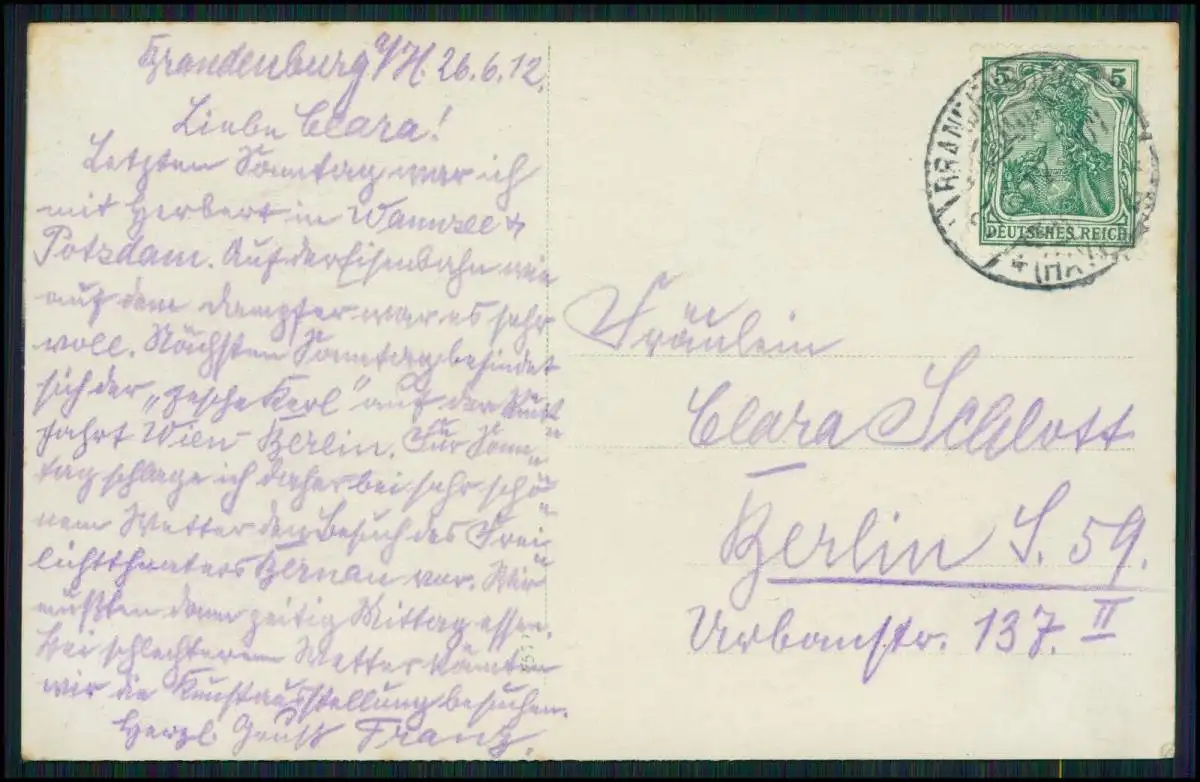 Brandenburg a/H. 26.6.12.
Liebe Clara!
Letzten Sonntag war ich
mit Herbert in Wannsee &
Potsdam. Auf der Eisenbahn wie
auf dem Dampfer war es sehr
voll. Nächsten Sonntag befindet
sich der „fesche Kerl" auf der
fahrt Wien-Berlin. Für Sonn-
tag schlage ich daher bei sehr schö-
nem Wetter den Besuch des Frei-
lichttheaters Bernau vor. Wir
müßten dann zeitig Mittag essen.
Bei schlechterem Wetter könnten
wir die Kunstausstellung besuchen.
Herzl. Gruß Franz.
5 5
DEUTSCHES REICH
Fräulein
Clara Schlott
Berlin S. 59.
Urbanstr. 137. II